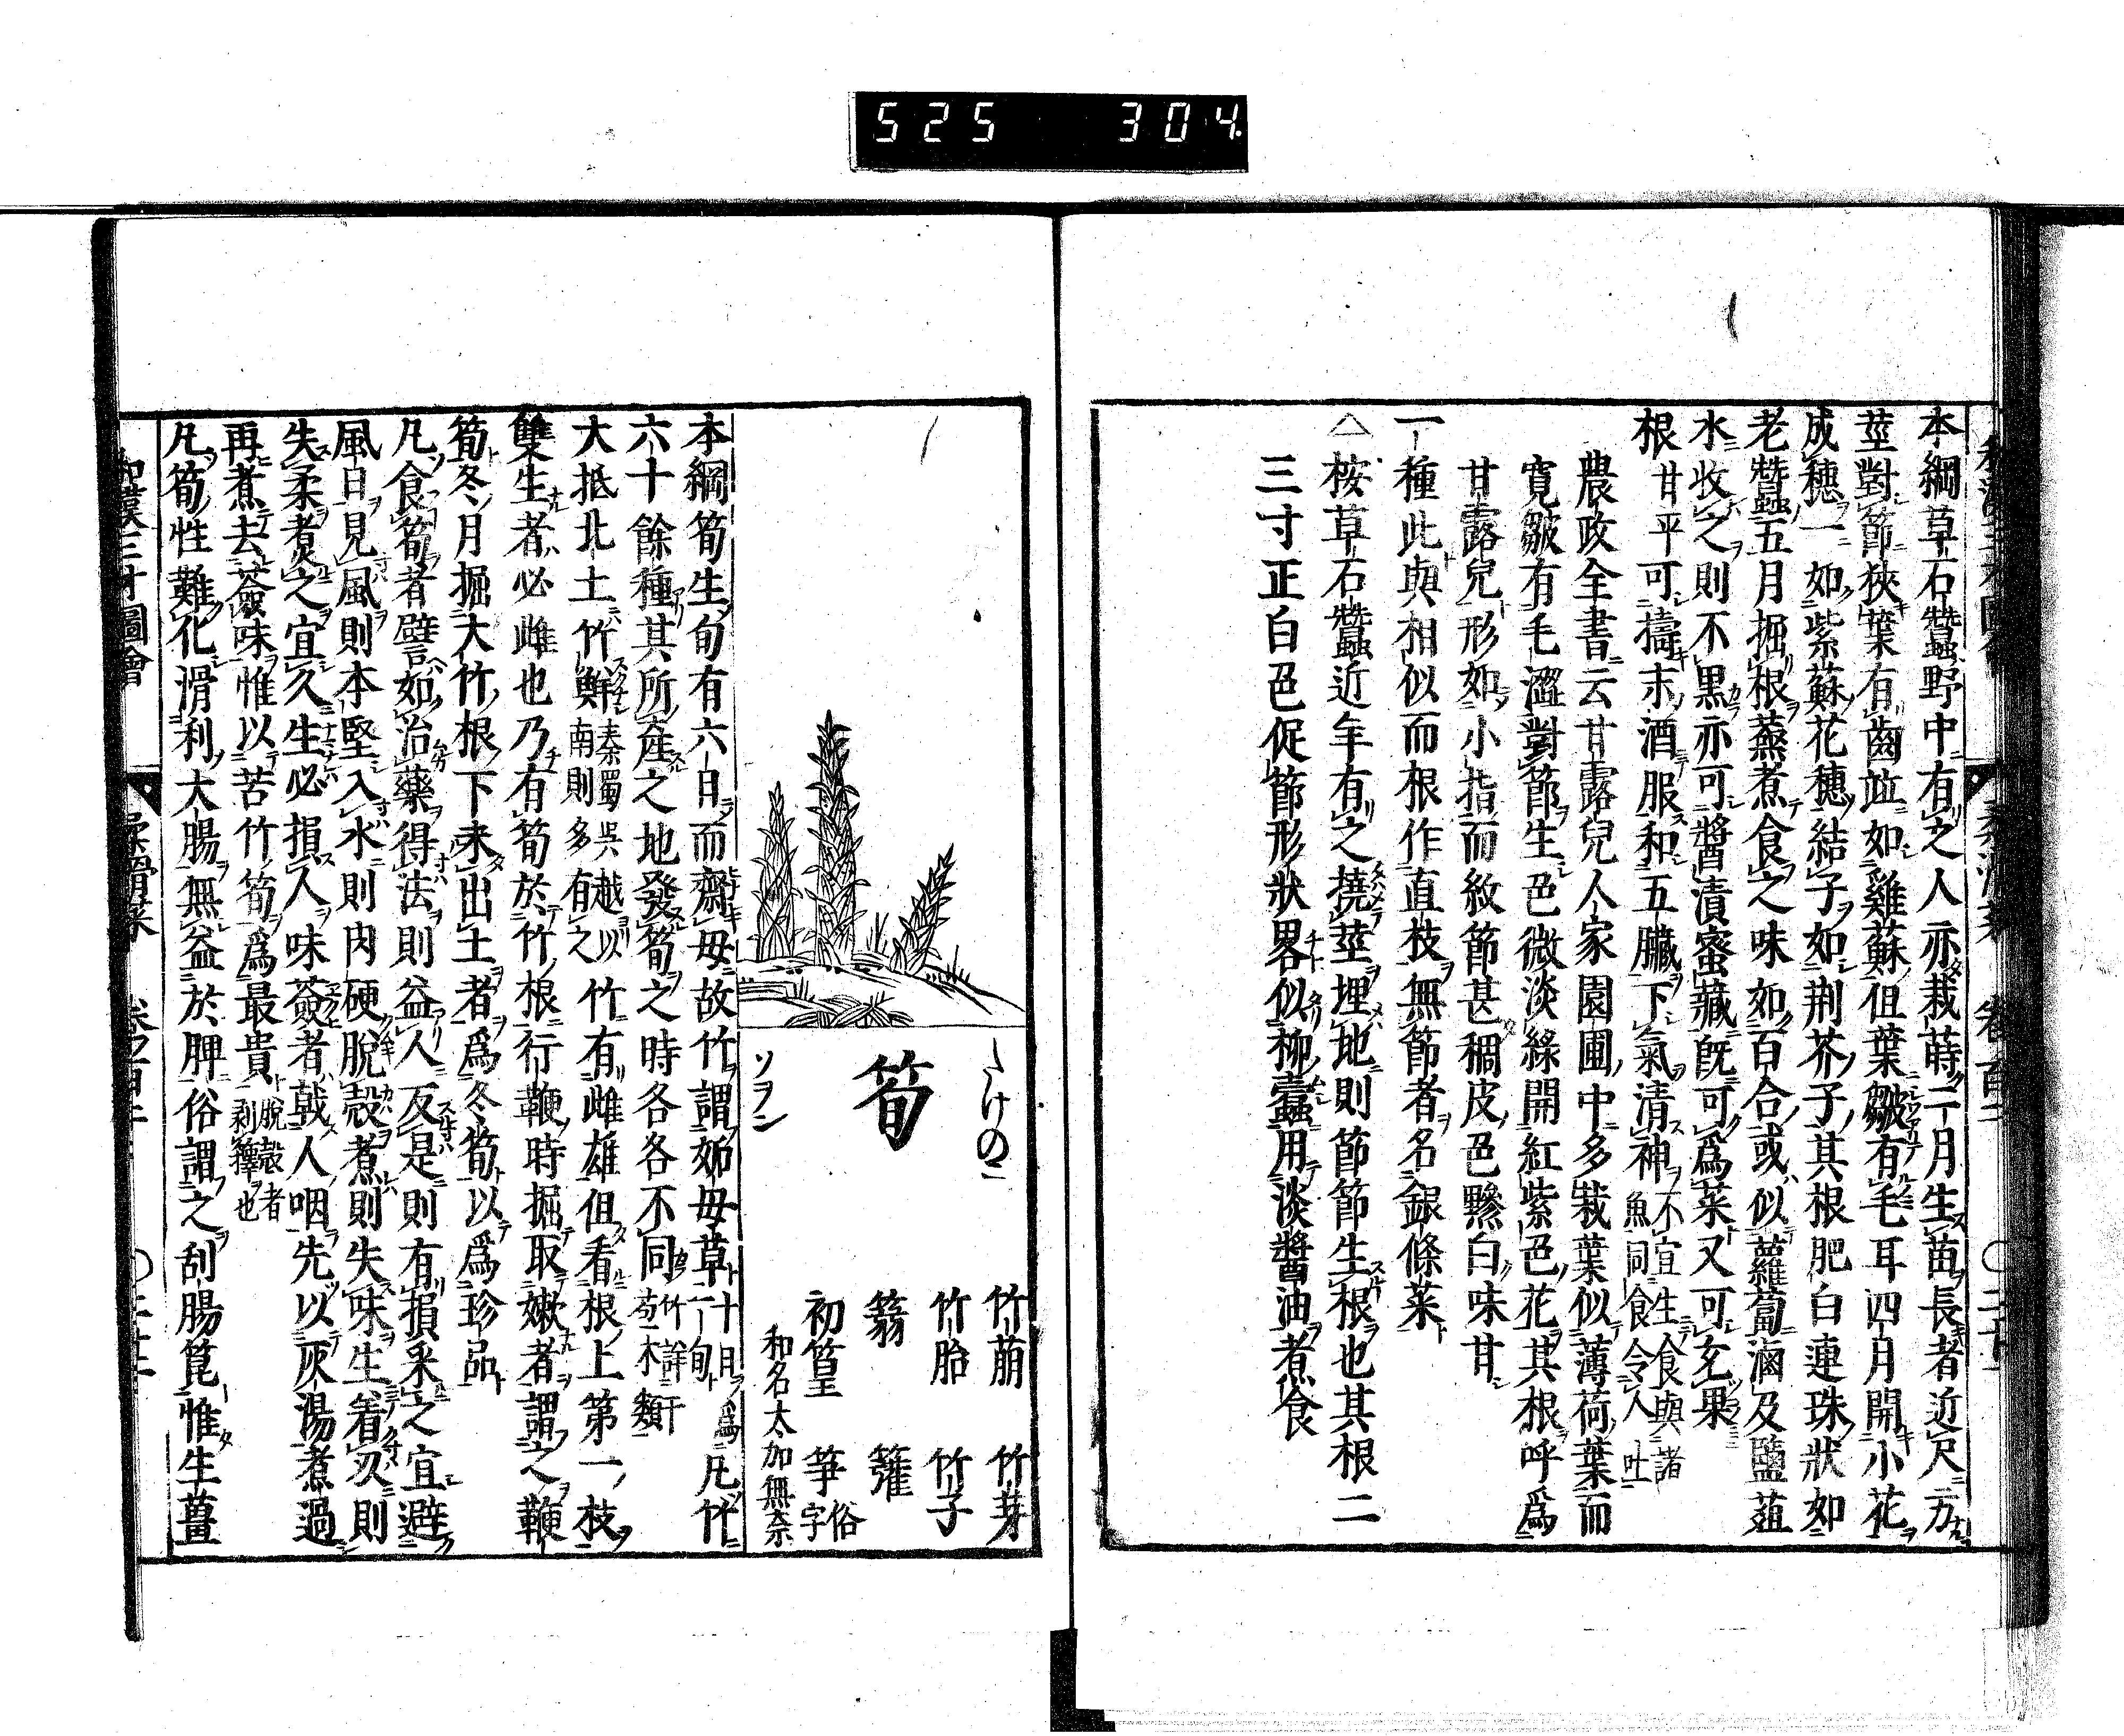 525 304
本綱草石蠶野中有之人亦栽蒔二月生苗長者近尺方
莖對節狹葉有齒竝如雞蘇但葉皺有毛耳四月開小花
成穗一如紫蘇花穗結子如荆芥子其根肥白連珠狀如
老蠶五月掘根蒸煮食之味如百合或似蘿蔔滷及鹽菹
水收之則不黒亦可醬漬蜜藏旣可爲菜又可充果
根甘平可擣末酒服和五臟下氣清神不宜生食與諸
魚同食令人吐
農政全書云甘露兒人家園圃中多栽葉似薄荷葉而
寬皺有毛澀對節生色微淡綠開紅紫色花其根呼爲
甘露兒形如小指而紋節甚稠皮色黲白味甘
一種此與相似而根作直枝無節者名銀條菜
△桉草石蠶近年有之撓莖埋地則節節生根也其根二
三寸正白色促節形狀畧似柳蠧蟲用淡醬油煮食
たけのこ
筍
ソヲン
竹萠 竹芽
竹胎 竹子
篛 䉶
初篁 笋俗字
和名太加無奈
本綱筍生旬有六日而齋母故竹謂妬母草十日爲一旬凡竹
六十餘種其所産之地發筍之時各各不同竹譜苛木類
大抵北土竹鮮秦蜀呉越以南則多有之竹有雌雄但看根上第一枝
雙生者必雌也乃有筍於竹根行鞭時掘取嫩者謂之鞭
筍冬月掘大竹根下未出土者爲冬筍以爲珍品
凡食筍者譬如治藥得法則益人反是則有損采之宜避
風日見風則本堅入水則肉硬脫殻煮則失味生着刄則
失柔煮之宜久生必損人味薟者戟人咽先以灰湯煮過
再煮去薟味惟以苦竹筍爲最貴脫殻者剥籜也
凡筍性難化滑利大腸無益於脾俗謂之刮腸篦惟生薑
和漢三才圖會 柔滑菜 卷百二